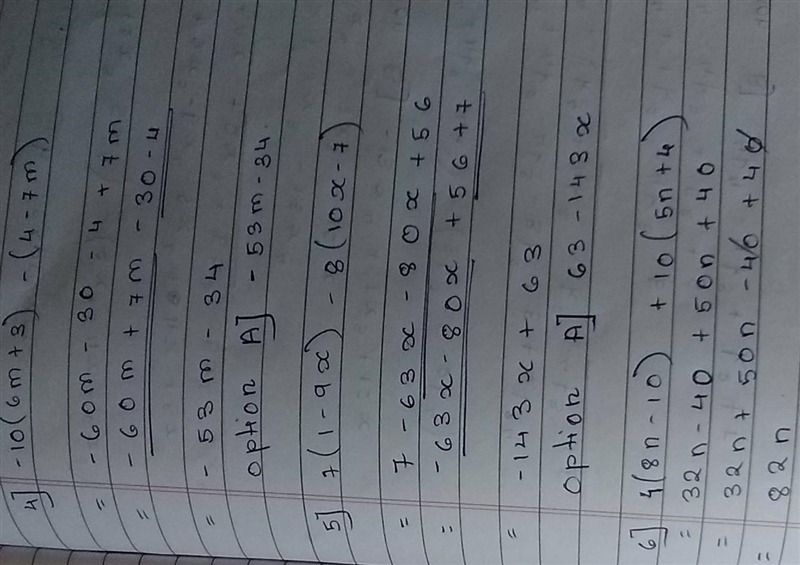 4] -10(6m+3) - (4-7m)
= -60m - 30 - 4 + 7m
= -60m + 7m - 30 - 4
= -53m - 34
option A] -53m - 34.
5] 7(1-9x) - 8(10x-7)
= 7 - 63x - 80x + 56
= -63x - 80x + 56 + 7
= -143x + 63
option A] 63 - 143x
6] 4(8n-10) + 10(5n+4)
= 32n - 40 + 50n + 40
= 32n + 50n - 40 + 40
= 82n